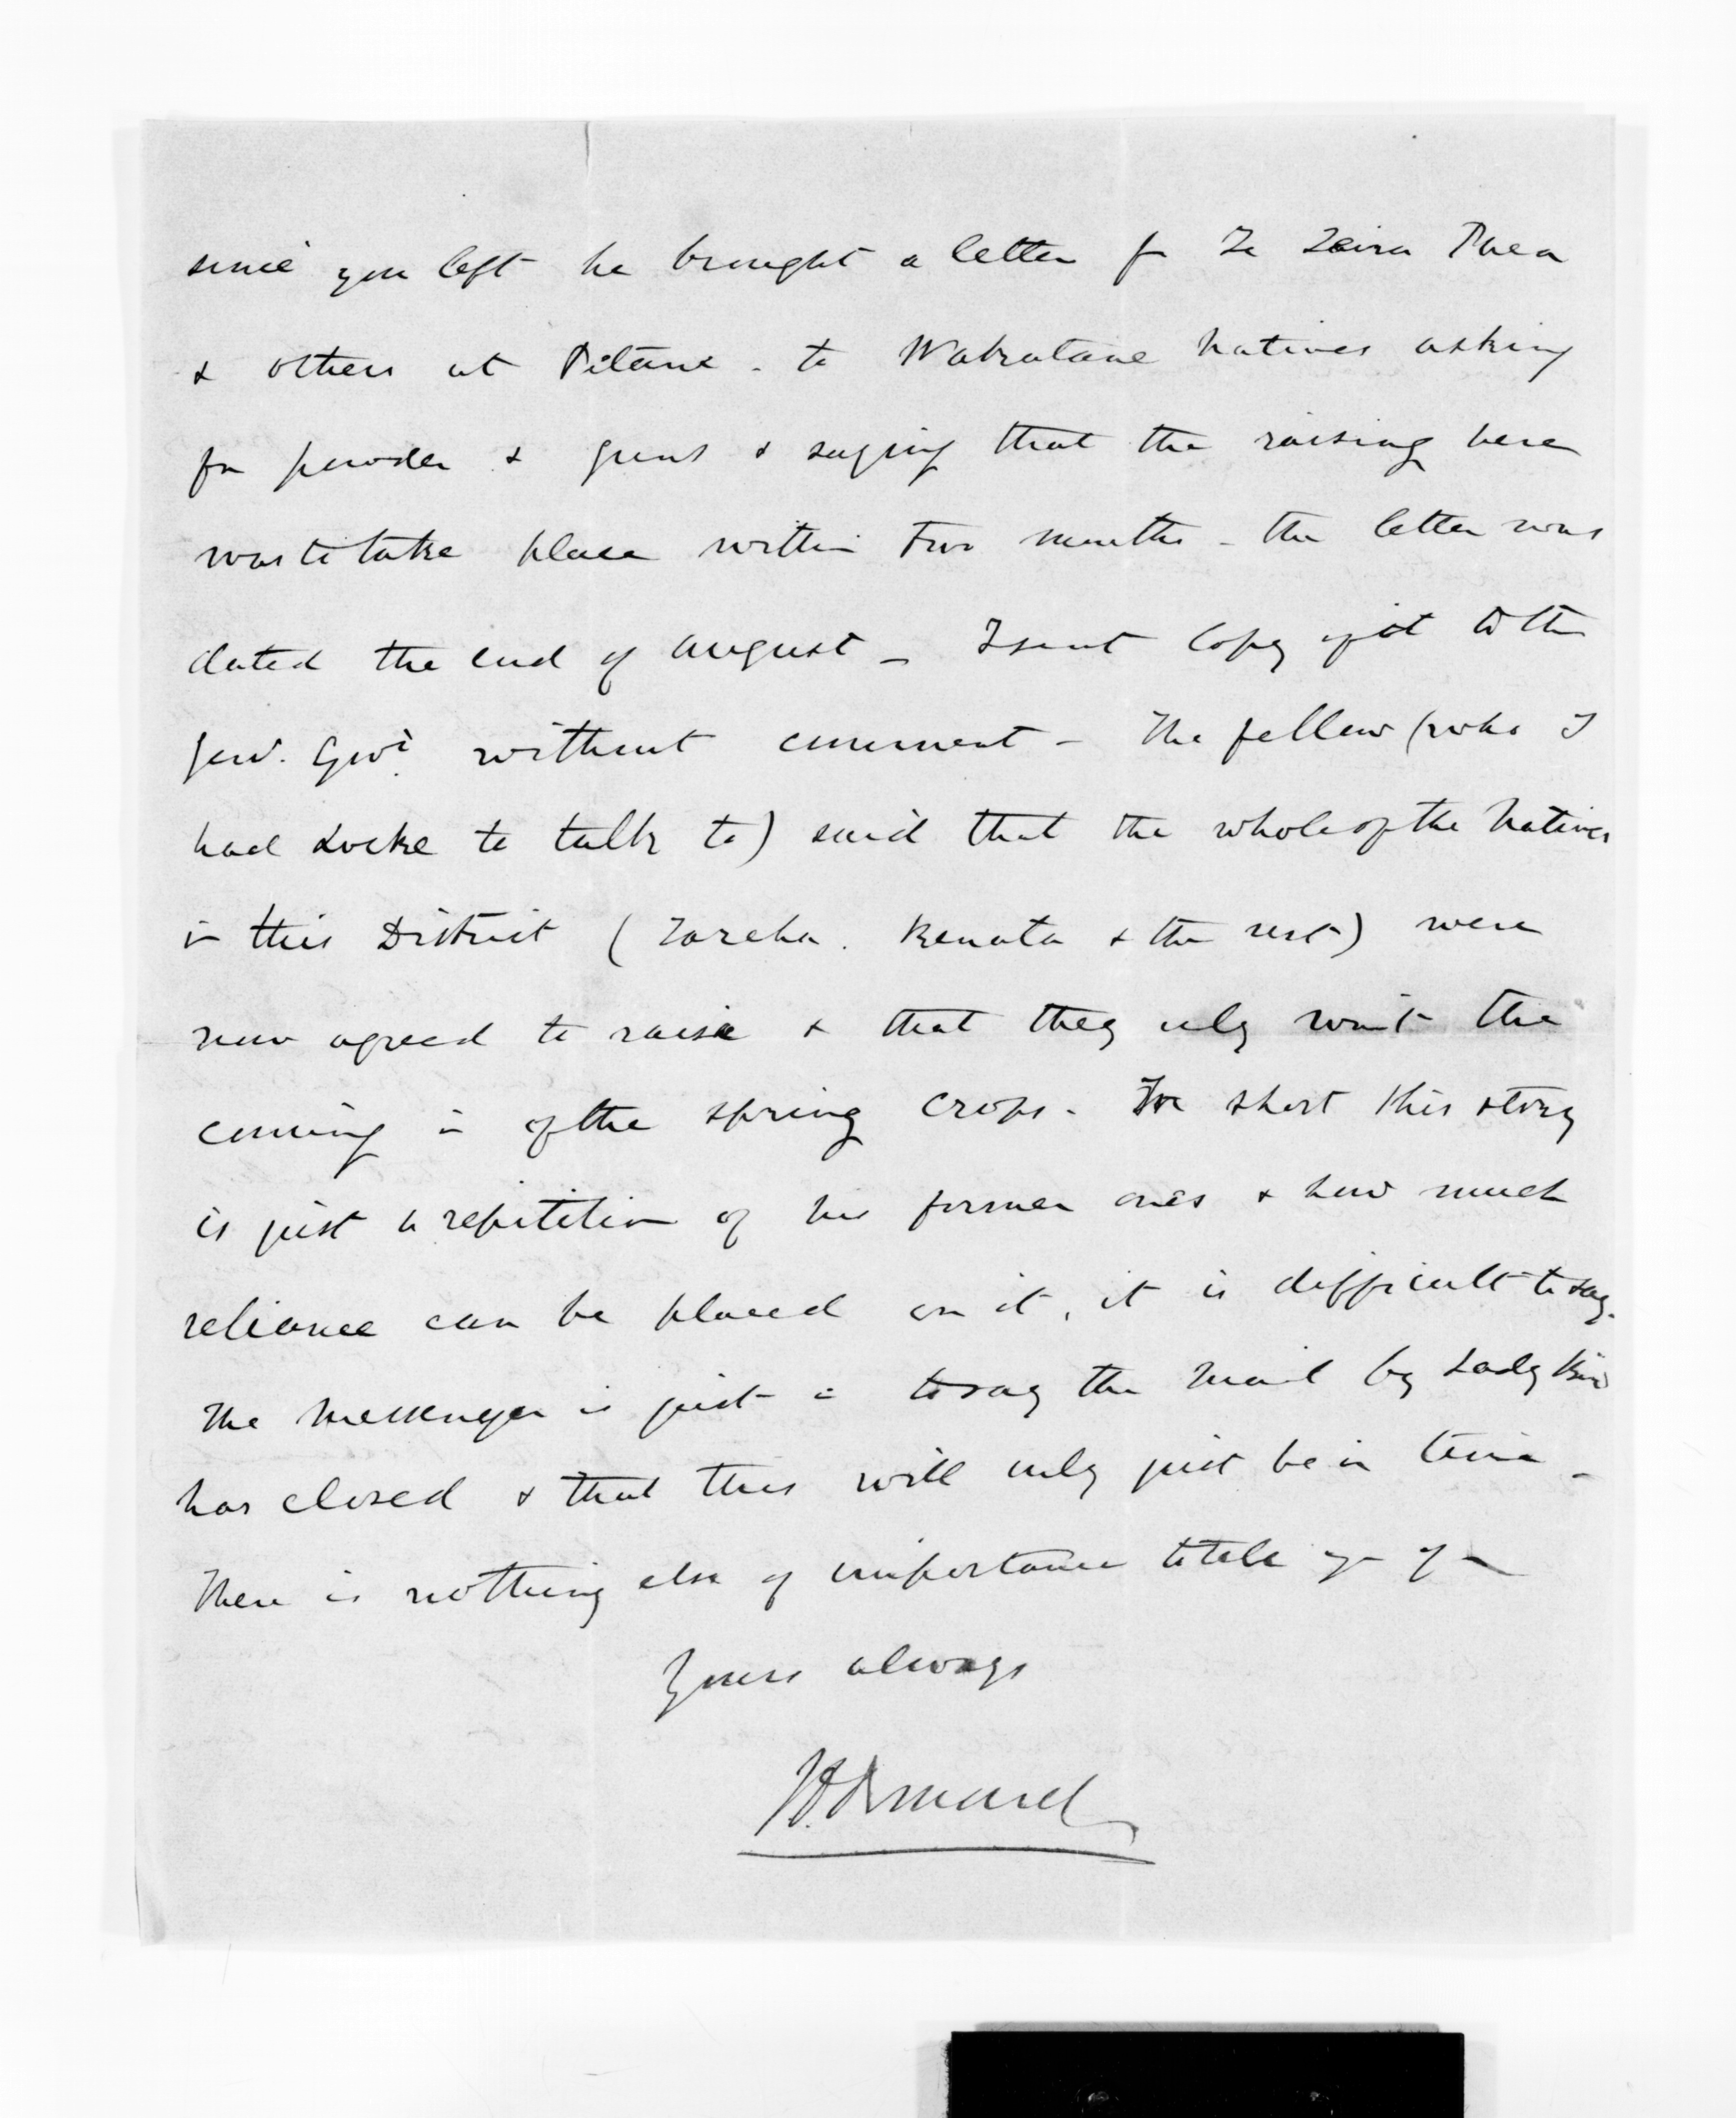 since you left he brought a letter fr Te Teira Thea
& others at Pitane - to Wakatane Natives asking
for powder & guns & saying that the raising here
was to take place within Two months - the letter was
dated the end of August - I sent Copy of it to the
Genl. Govt. without comment - The fellow (who I
had Locke to talk to) said that the whole of the Natives
in this District (Tareha. Renata & the rest) were
now agreed to raise & that they only wait the
coming in of the spring crops. In short this story
is just a repitition of his former ones & how much
reliance can be placed on it, it is difficult to say.
The Messenger is just in to say the Mail by Lady Bird
has closed & that this will only just be in time -
There is nothing else of importance to tell you of
Yours always
J.D. Ormond